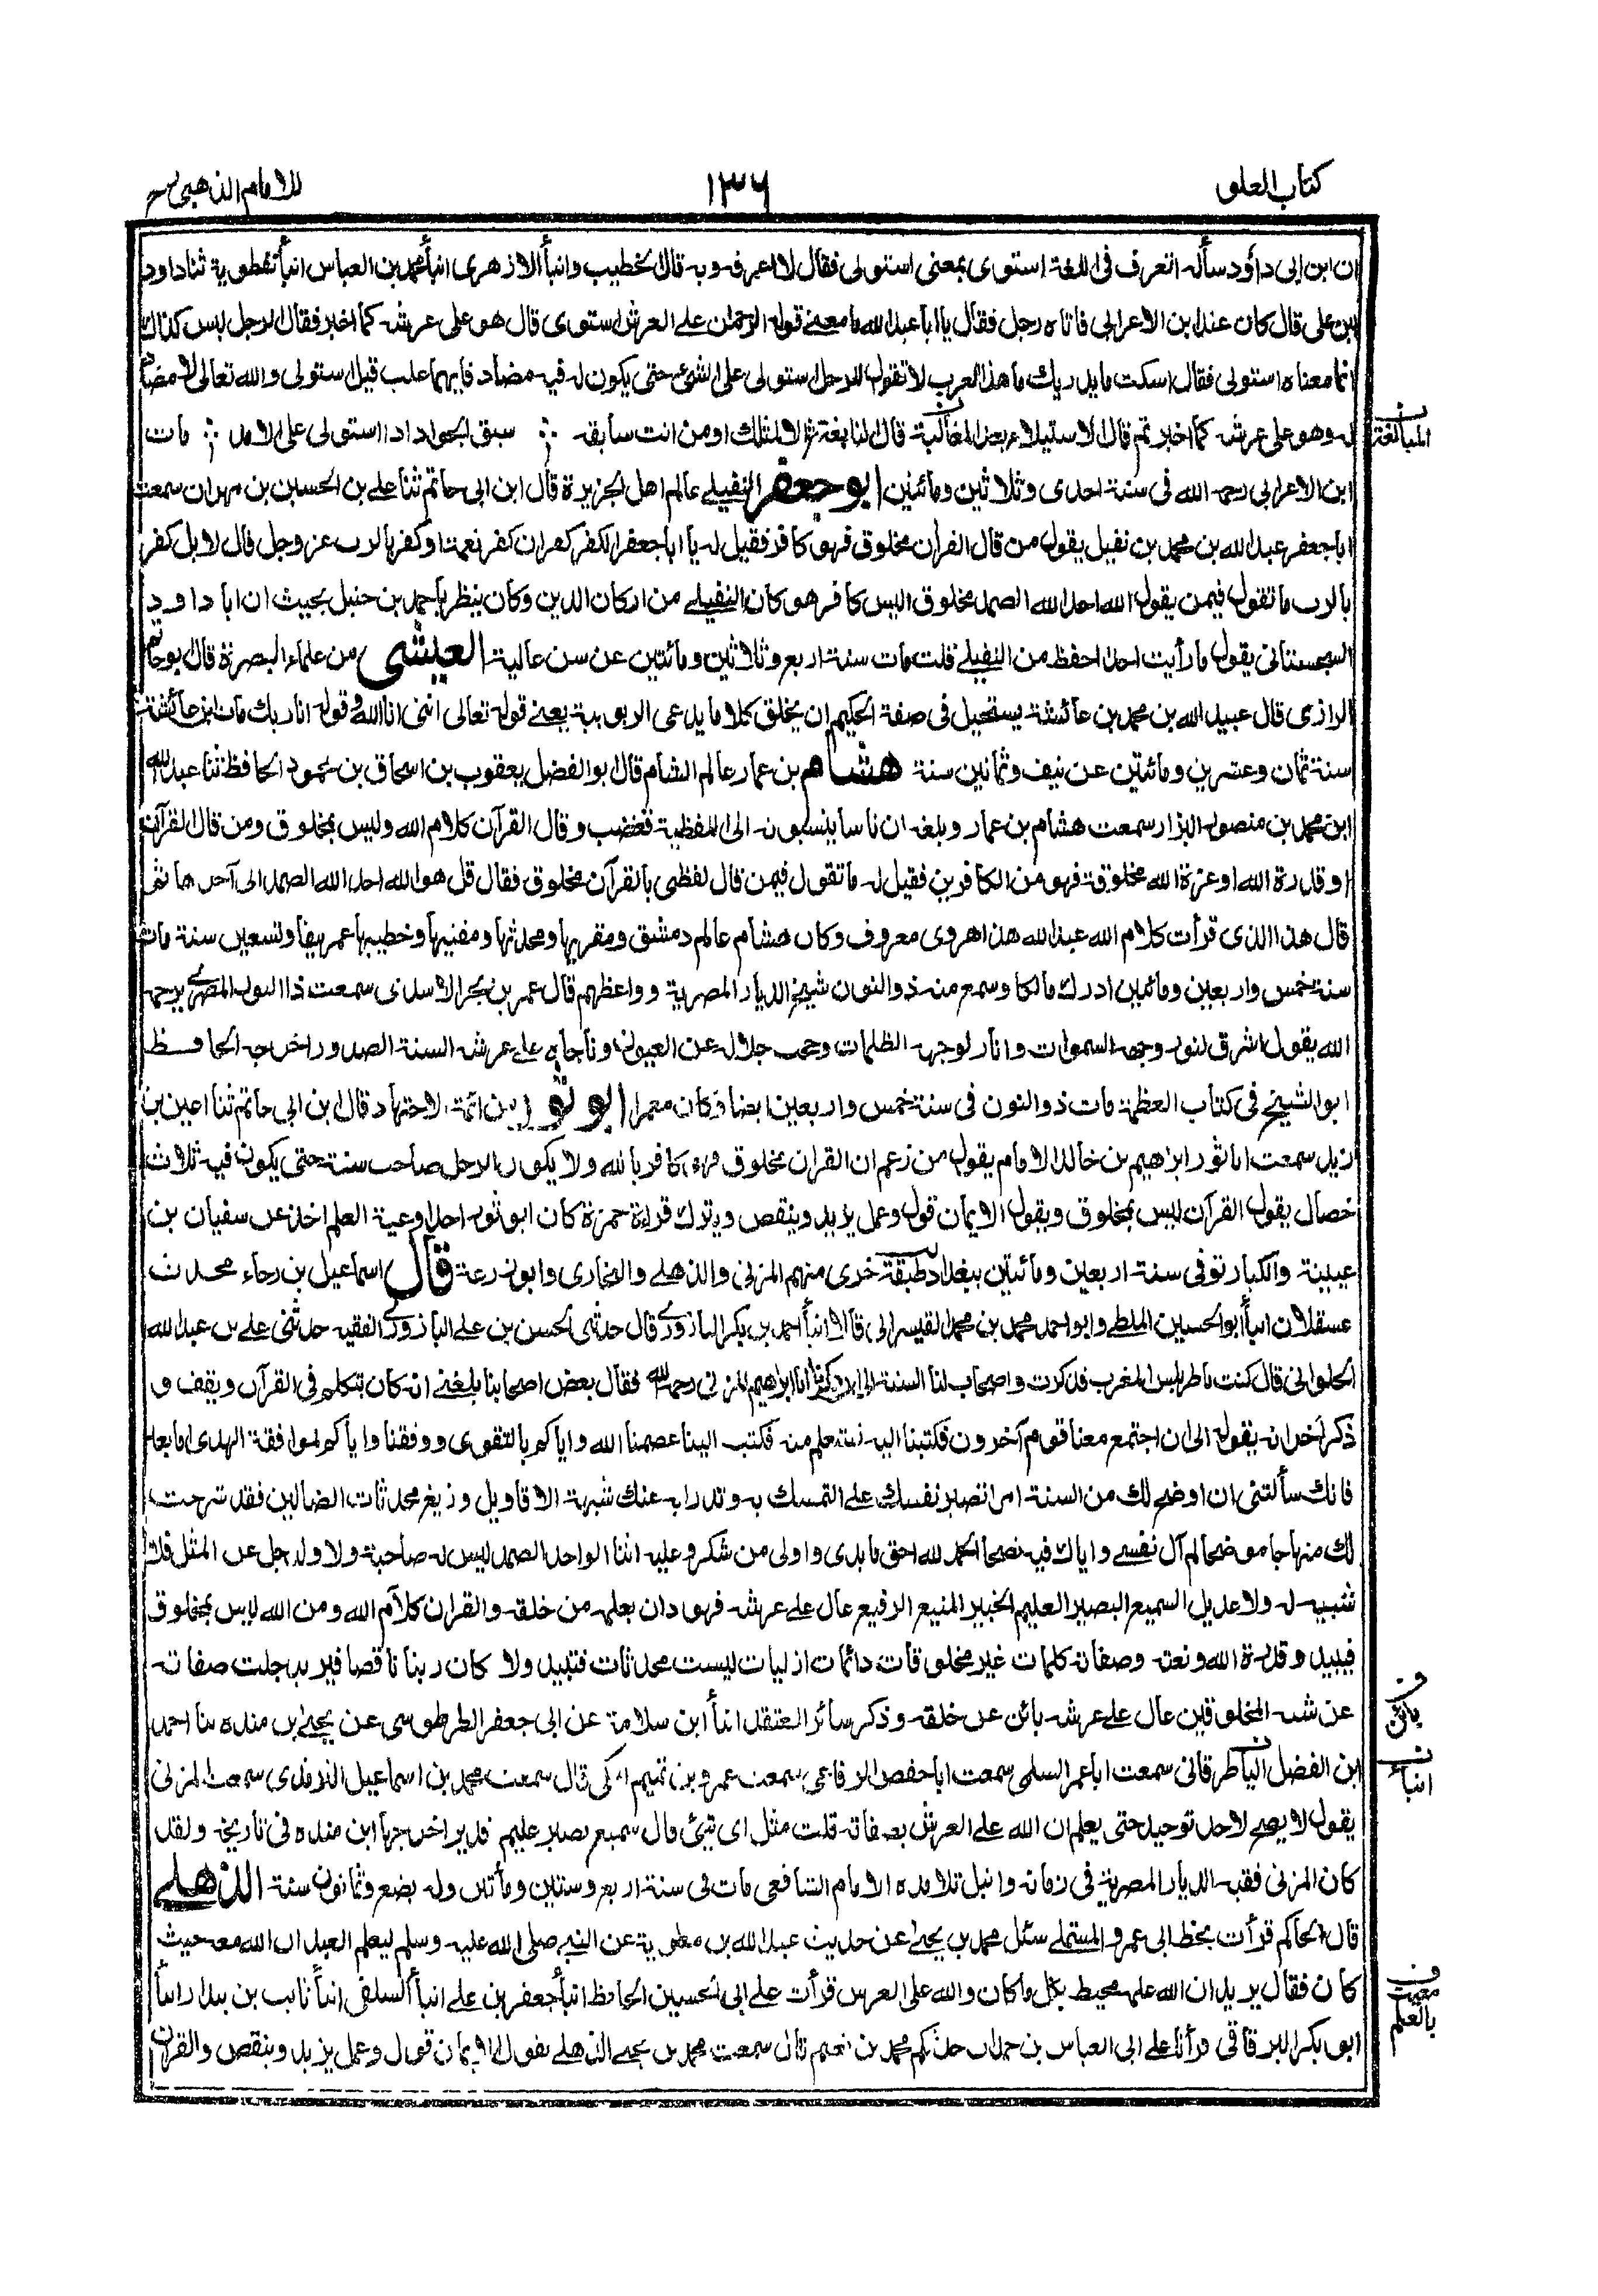 كتاب العلو
١٣٦
للامام الذهبى
ان ابن ابى داؤد سأله اتعرف فى اللغة استوى بمعنى استولى فقال لا اعرف وبه قال الخطيب وانبأ الازهرى انبأ محمد بن العباس انبأ نفطوية ثنا داود
ابن على قال كان عند ابن الاعرابى فاتاه رجل فقال يا ابا عبد الله ما معنے قوله الرحمان علے العرش استوى قال هو على عرشه كما اخبر فقال الرجل ليس كذاك
انما معناه استولى فقال اسكت ما يدريك ما هذا العرب لا تقول للرجل استولى على الشئ حتى يكون له فيه مضاد فايهما غلب قيل استولى والله تعالى لا مضاد
له وهو على عرشه كما اخبر ثم قال الاستيلاء بعد المغالبة قال النابغة الا لمثلك او من انت سابقه ؞ سبق الجواد اذا استولى على الامد ؞ مات
المبالغة
ابن الاعرابى رحمه الله فى سنة احدى وثلاثين ومائتين ابو جعفر النفيلے عالم اهل الجزيرة قال ابن ابى حاتم ثنا علے بن الحسين بن مهران سمعت
ابا جعفر عبد الله بن محمد بن نفيل يقول من قال القران مخلوق فهو كافر فقيل له يا ابا جعفر الكفر كفران كفر نعمة او كفر بالرب عز وجل قال لا بل كفر
بالرب ما تقول فيمن يقول الله احد الله الصمد مخلوق اليس كافر هو كان النفيلے من اركان الدين وكان ينظر باحمد بن حنبل بحيث ان ابا داود
السجستانى يقول ما رأيت احدا احفظ من النفيلے قلت مات سنة اربع وثلاثين ومائتين عن سن عالية العيشى من علماء البصرة قال ابو حاتم
الرازى قال عبيد الله بن محمد بن عائشة يستحيل فى صفة الحكيم ان يخلق كلاما يدعى الربوبية يعنے قوله تعالى اننى انا الله وقوله انا ربك مات ابن عائشة
سنة ثمان وعشرين ومائتين عن نيف وثمانين سنة هشام بن عمار عالم الشام قال ابو الفضل يعقوب بن اسحاق بن محمود الحافظ ثنا عبد الله
ابن محمد بن منصور البزار سمعت هشام بن عمار وبلغه ان ناسا ينسبونه الى اللفظية فغضب وقال القرآن كلام الله وليس بمخلوق ومن قال القرآن
او قدرة الله او عزة الله مخلوقة فهو من الكافرين فقيل له ما تقول فيمن قال لفظى بالقرآن مخلوق فقال قل هو الله احد الله الصمد الى آخرها ثم
قال هذا الذى قرأت كلام الله عبد الله هذا هروى معروف وكان هشام عالم دمشق ومقريها ومحدثها ومفتيها وخطيبها عمر نيفا وتسعين سنة مات
سنة خمس واربعين ومائتين ادرك مالكا وسمع منه ذو النون شيخ الديار المصرية وواعظهم قال عمر بن بحر الاسدى سمعت ذا النون المصرے يرحمه
الله يقول اشرق لنور وجهه السموات وانار لوجهه الظلمات وحجب جلاله عن العيون وناجاه علے عرشه السنة الصدور اخرجه الحافظ
ابو الشيخ فى كتاب العظمة مات ذو النون فى سنة خمس واربعين ايضا وكان معمرا ابو ثور من ائمة الاجتهاد قال ابن ابى حاتم ثنا اعين بن
زيد سمعت ابا ثور ابراهيم بن خالد الامام يقول من زعم ان القران مخلوق فهو كافر بالله ولا يكون الرجل صاحب سنة حتى يكون فيه ثلاث
خصال يقول القرآن ليس بمخلوق ويقول الايمان قول وعمل يزيد وينقص ويترك قراءة حمزة كان ابو ثور احد اوعية العلم اخذ عن سفيان بن
عيينة والكبار توفى سنة اربعين ومائتين ببغداد طبقة اخرى منهم المزنى والذهلے والبخارى وابو زرعة قال اسماعيل بن رجاء محدث
عسقلان انبأ ابو الحسين الملطے وابو احمد محمد بن محمد القيسرانى قالا انبأ احمد بن بكر اليازورے قال حدثنى الحسن بن علے اليازورے الفقيه حدثنى علے بن عبد الله
الحلوانى قال كنت باطرابلس المغرب فذكرت واصحاب لنا السنة الى ان ذكرنا ابا ابراهيم المزنى رحمه الله فقال بعض اصحابنا بلغنے انه كان يتكلم فى القرآن ويقف و
ذكر آخر انه يقوله الى ان اجتمع معنا قوم آخرون فكتبنا اليه نستعلم منه فكتب الينا عصمنا الله واياكم بالتقوى ووفقنا واياكم لموافقة الهدى اما بعد
فانك سألتنى ان اوضح لك من السنة امرا تصبر نفسك علے التمسك به وتدرا به عنك شبهة الاقاويل وزيغ محدثات الضالين فقد شرحت
لك منهاجا موضحا لم آل نفسے واياك فيه نصحا الحمد لله احق ما بدى واولى من شكر وعليه اثنى الواحد الصمد ليس له صاحبة ولا ولد جل عن المثل فلا
شبيه له ولا عديل السميع البصير العليم الخبير المنيع الرفيع عال علے عرشه فهو دان بعلمه من خلقه والقران كلام الله ومن الله ليس بمخلوق
فيبيد وقدرة الله ونعته وصفاته كلمات غير مخلوقات دائمات ازليات ليست محدثات فتبيد ولا كان ربنا ناقصا فيزيد جلت صفاته
عن شبه المخلوقين عال علے عرشه بائن عن خلقه وذكر سائر المعتقد انبأ ابن سلامة عن ابى جعفر الطرطوسى عن يحيے بن منده ثنا احمد
بائن
ابن الفضل الباطرقانى سمعت ابا عمر السلمى سمعت ابا حفص الرفاعى سمعت عمرو بن تميم المكى قال سمعت محمد بن اسماعيل الترمذى سمعت المزنى
انباء
يقول لا يصح لاحد توحيد حتى يعلم ان الله علے العرش بصفاته قلت مثل اى شئ قال سميع بصير عليم قدير اخرجها ابن منده فى تاريخه ولقد
كان المزنى فقيه الديار المصرية فى زمانه وانبل تلامذة الامام الشافعى مات فى سنة اربع وستين ومأتين وله بضع وثمانون سنة الذهلے
قال الحاكم قرأت بخط ابى عمرو المستملے سئل محمد بن يحيے عن حديث عبد الله بن معوية عن النبى صلى الله عليه وسلم ليعلم العبد ان الله معه حيث
كان فقال يريد ان الله علمه محيط بكل ما كان والله على العرش قرأت علے ابى الحسين الحافظ انبأ جعفر بن علے انبأ السلفى انبأ ثابت بن بندار انبأ
معيت بالعلم
ابو بكر البرقانى قرأنا على ابى العباس بن حمدان حدثكم محمد بن نعيم قال سمعت محمد بن يحيے الذهلے يقول الايمان قول وعمل يزيد وينقص والقران